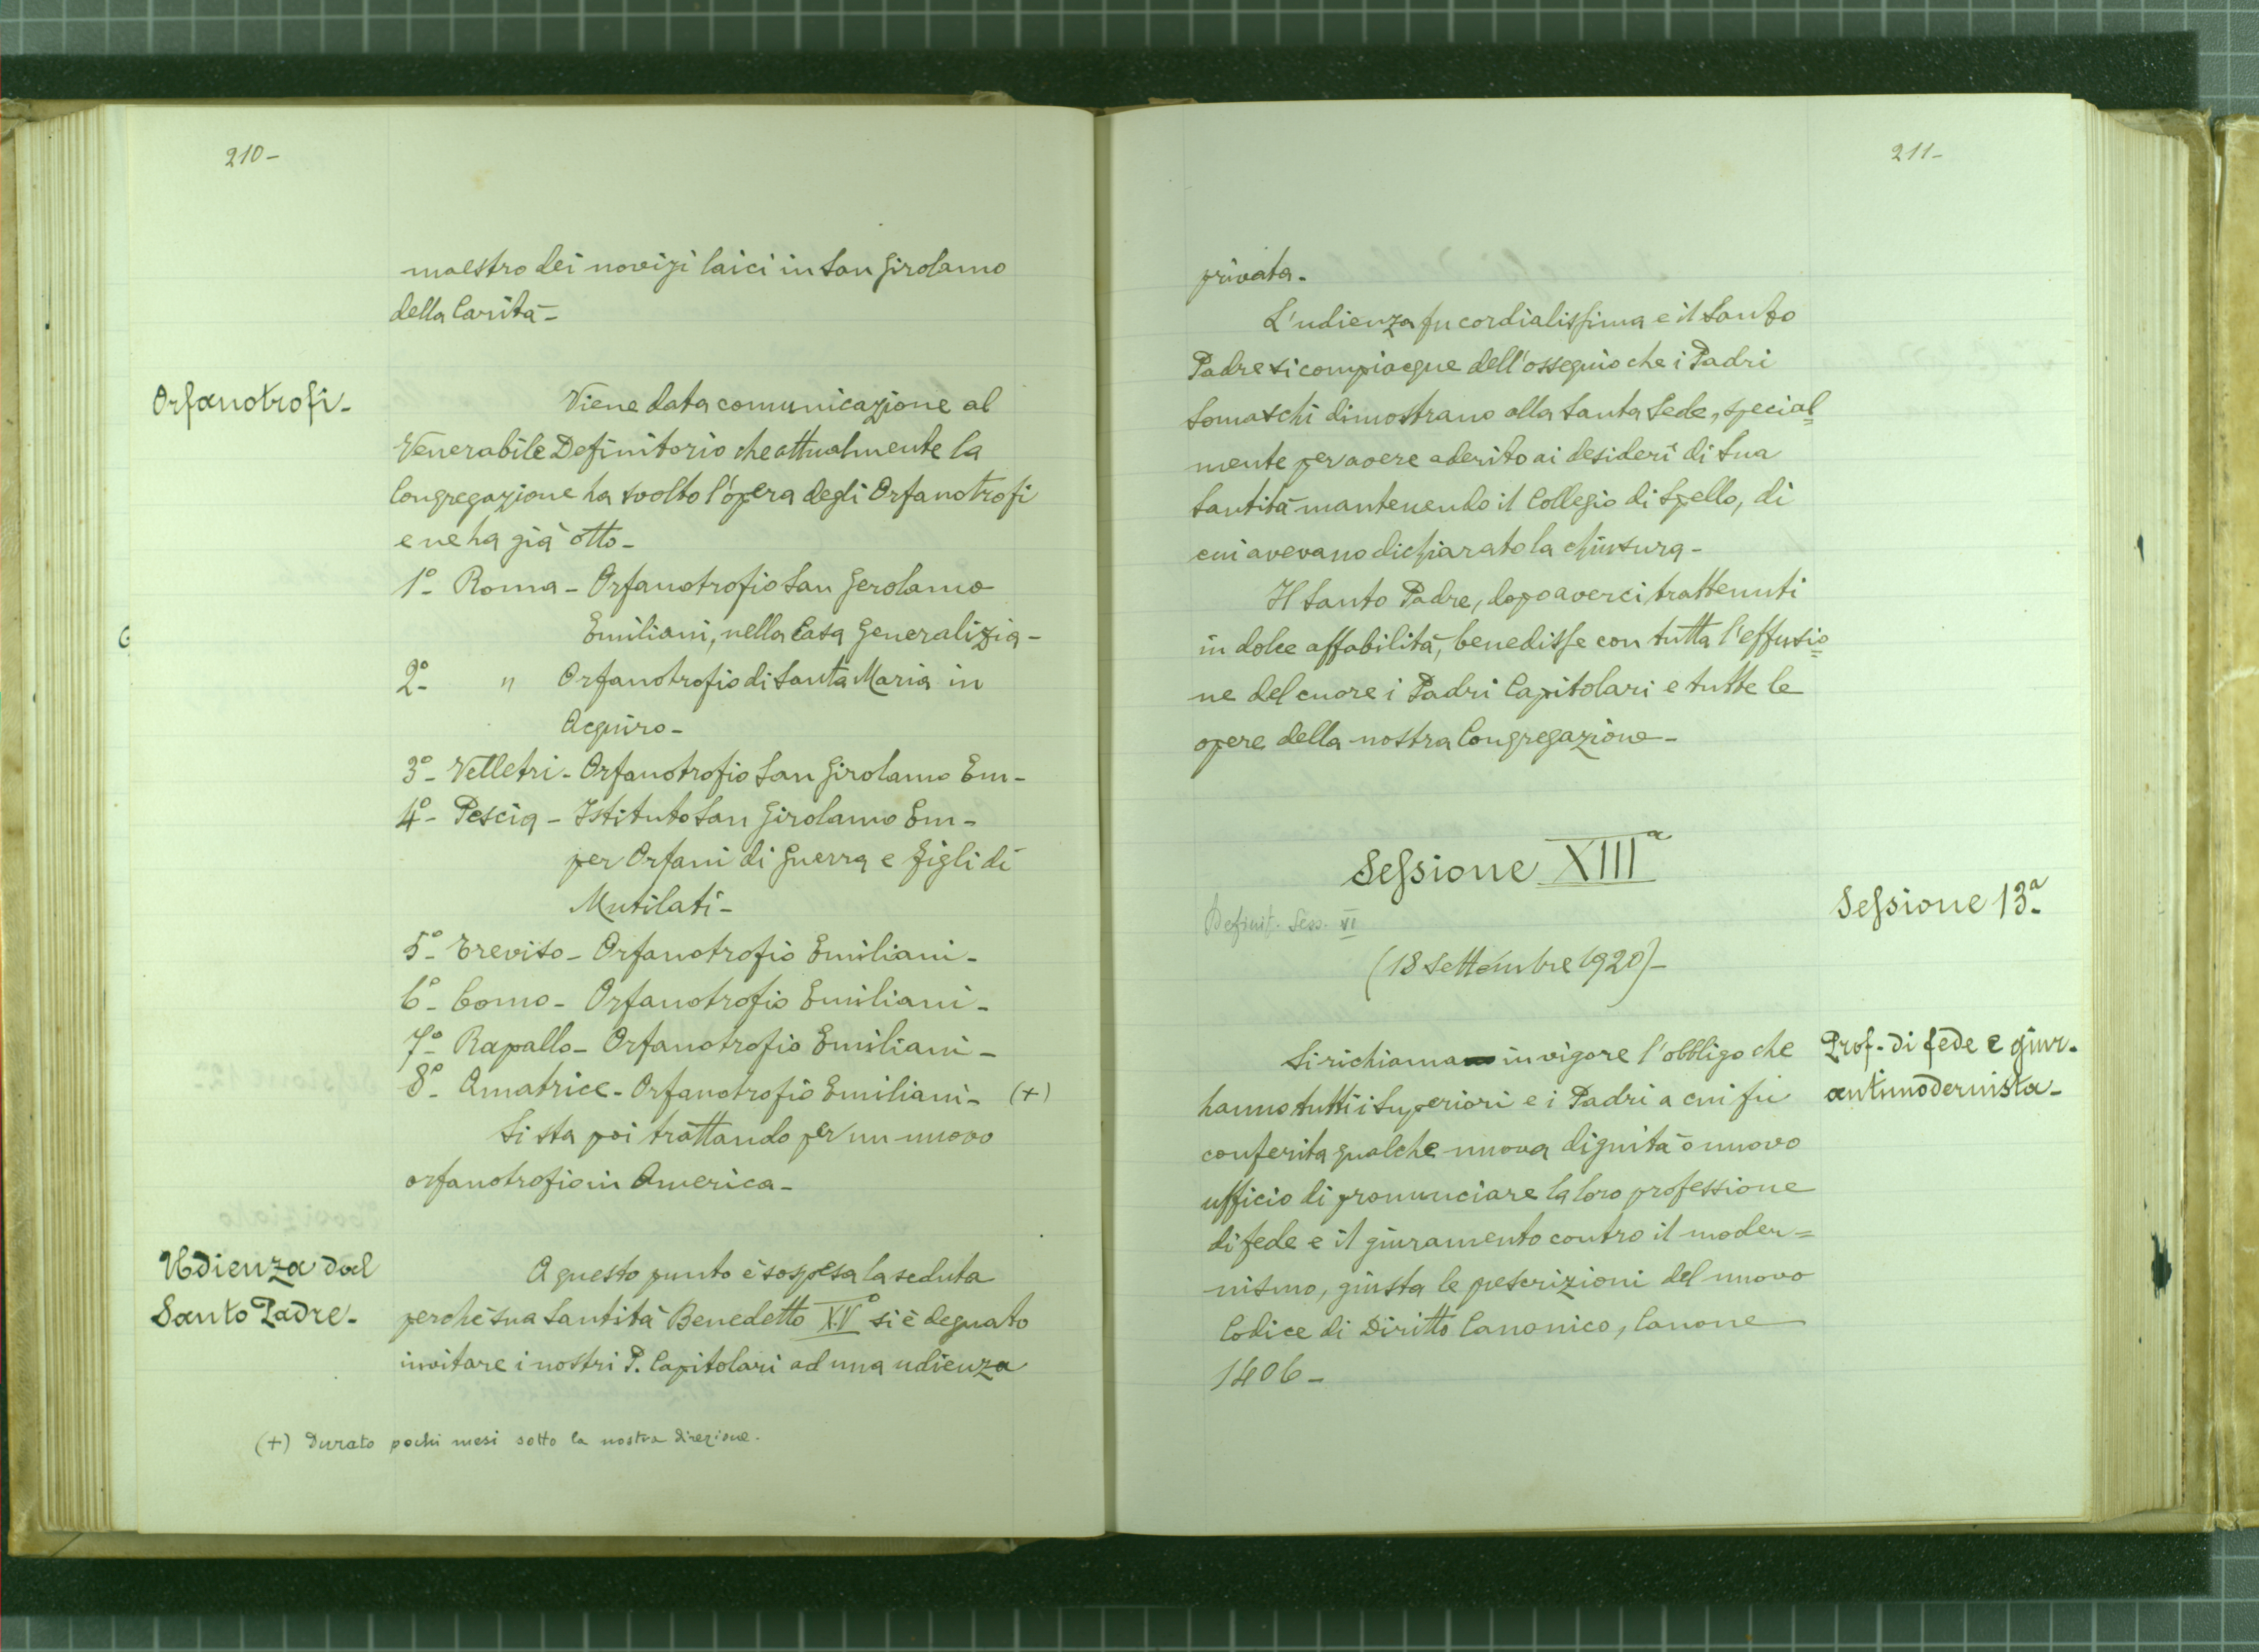 210-
maestro dei novizi laici in San Girolamo
della Carità-
Orfanotrofi-
Viene data comunicazione al
Venerabile Definitorio che attualmente la
Congregazione ha svolto l'opera degli Orfanotrofi
e ne ha già otto-
1º- Roma- Orfanotrofio San Gerolamo
Emiliani, nella Casa Generalizia-
2º- " Orfanotrofio di Santa Maria in
Acquiro-
3º- Velletri- Orfanotrofio San Girolamo Em-
4º- Pescia- Istituto San Girolamo Em-
per Orfani di Guerra e Figli di
Mutilati-
5º- Treviso- Orfanotrofio Emiliani-
6º- Como- Orfanotrofio Emiliani-
7º- Rapallo- Orfanotrofio Emiliani-
8º- Amatrice- Orfanotrofio Emiliani- (+)
Si sta poi trattando per un nuovo
orfanotrofio in America-
Udienza dal
Santo Padre-
A questo punto è sospesa la seduta
perchè sua Santità Benedetto XVº si è degnato
invitare i nostri P. Capitolari ad una udienza
(+) Durato pochi mesi sotto la nostra direzione.
211-
privata-
L'udienza fu cordialissima e il Santo
Padre si compiacque dell'ossequio che i Padri
Somaschi dimostrano alla Santa Sede, special=
mente per avere aderito ai desiderî di Sua
Santità mantenendo il Collegio di Spello, di
cui avevano dichiarato la chiusura-
Il Santo Padre, dopo averci trattenuti
in dolce affabilità, benedisse con tutta l'effusio=
ne del cuore i Padri Capitolari e tutte le
opere della nostra Congregazione-
Sessione XIIIª
Sessione 13ª-
Definit. Sess. VI
(18 Settembre 1920)-
Prof- di fede e giur-
antimodernista-
Si richiama in vigore l'obbligo che
hanno tutti i Superiori e i Padri a cui fu
conferita qualche nuova dignità o nuovo
ufficio di pronunciare la loro professione
di fede e il giuramento contro il moder=
nismo, giusta le pescrizioni del nuovo
Codice di Diritto Canonico, Canone
1406-